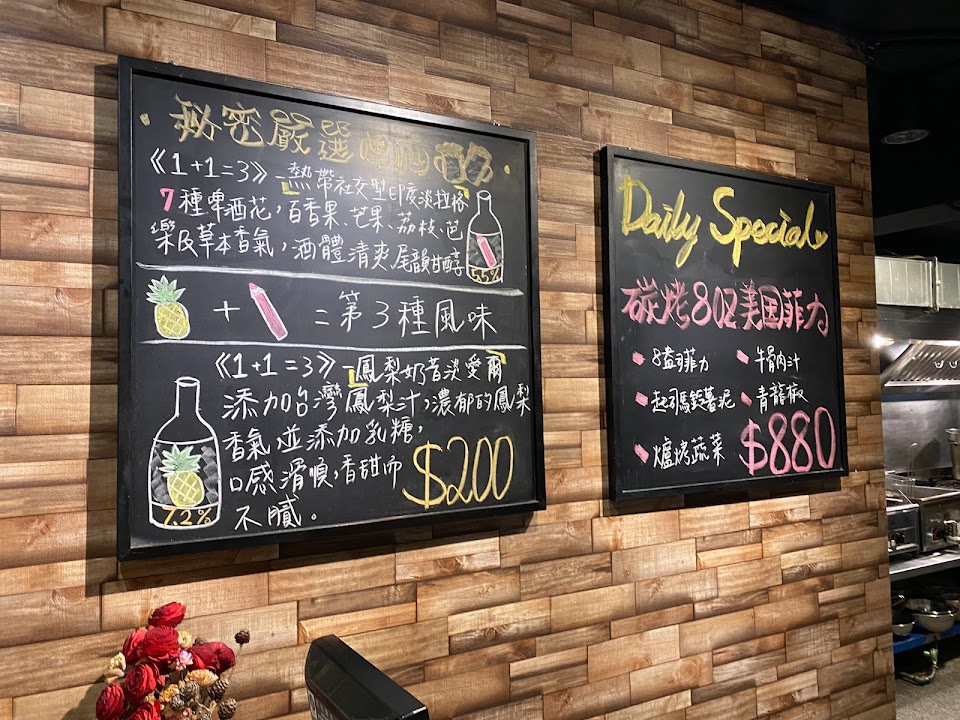 秘密嚴選啤酒
《1+1=3》-熱帶社交型印度淡拉格
7種啤酒花,百香果、芒果、荔枝、芭
樂及草本香氣,酒體清爽尾韻甘醇
5.5%
+ = 第3種風味
《1+1=3》-鳳梨奶昔淡愛爾
添加台灣鳳梨汁,濃郁的鳳梨
香氣並添加乳糖,
口感滑順,香甜而
不膩。
$200
7.2%
Daily Special
碳烤8oz美國菲力
8盎司菲力
牛骨肉汁
起司馬鈴薯泥
青龍椒
爐烤蔬菜
$880